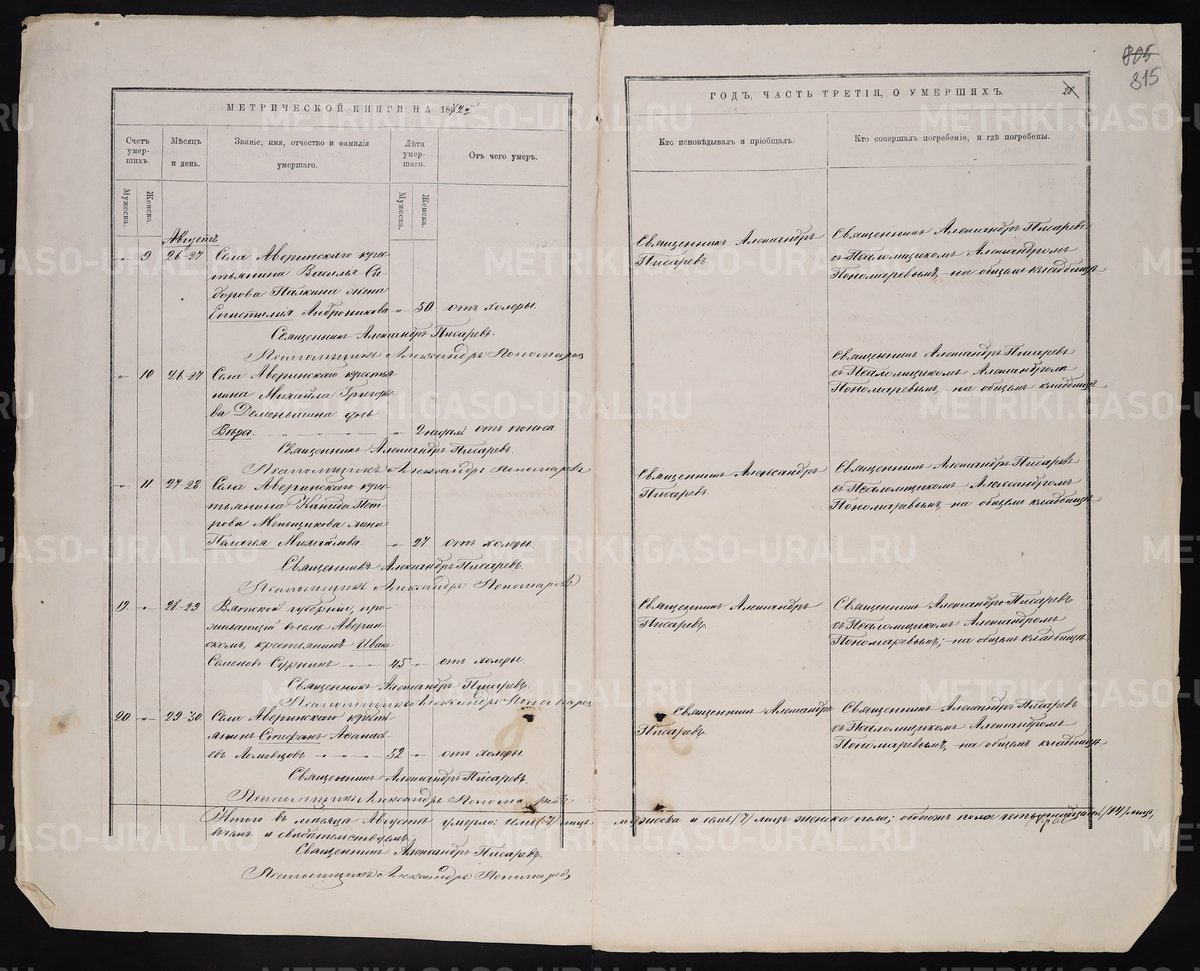 805
815
МЕТРИЧЕСКОЙ КНИГИ НА 1892
Счетъ умер-шихъ.
Мѣсяцъ и день.
Званіе, имя, отчество и фамилія умершаго.
Лѣта умер-шаго.
Отъ чего умеръ.
Мужеска.
Женска.
Мужеска.
Женска.
Августъ
„ 9 26-27 Села Аверинскаго кре-
стьянина Василья Си-
дорова Палкина жена
Епистилія Андроникова „ 50 отъ холеры.
Священникъ Александръ Писаревъ.
Псаломщикъ Александръ Пономарев
„ 10 26-27 Села Аверинскаго крестья
нина Михайла Григорь
ва Деменьшина дчь
Вѣра. „ 2 недѣл отъ поноса
Священникъ Александръ Писаревъ.
Псаломщикъ Александръ Пономаревъ
„ 11 27-28 Села Аверинскаго кре-
стьянина Пет-
рова Меньщикова жена
Пелагея Михайлова. „ 27 отъ холеры.
Священникъ Александръ Писаревъ.
Псаломщикъ Александръ Пономаревъ
19 „ 28-29 Вятской губерніи, про-
живающій въ селѣ Аверин-
скомъ, крестьянинъ Иванъ
Семеновъ 45 „ отъ холеры
Священникъ Александръ Писаревъ.
Псаломщикъ Александръ Пономарев
20 „ 29-30 Села Аверинскаго кресть
янинъ Стефанъ Аѳанась
евъ Ломовцовъ 52 „ отъ холеры
Священникъ Александръ Писаревъ.
Псаломщикъ Александръ Пономаревъ
Итого въ мѣсяцѣ Августѣ умерло: семь (7) лицъ мужеска и семь (7) лицъ женска пола; обоего пола четырнадцать (14) лицъ,
въ чемъ и свидѣтельствуемъ:
Священникъ Александръ Писаревъ.
Псаломщикъ Александръ Пономаревъ
ГОДЪ, ЧАСТЬ ТРЕТІЯ, О УМЕРШИХЪ.
Кто исповѣдывалъ и пріобщалъ.
Кто совершалъ погребеніе, и гдѣ погребены.
Священникъ Александръ
Писаревъ.
Священникъ Александръ Писаревъ
съ Псаломщикомъ Александромъ
Пономаревымъ, на общемъ кладбищѣ
Священникъ Александръ Писаревъ
съ Псаломщикомъ Александромъ
Пономаревымъ, на общемъ кладбищѣ
Священникъ Александръ
Писаревъ.
Священникъ Александръ Писаревъ
съ Псаломщикомъ Александромъ
Пономаревымъ на общемъ кладбищѣ
Священникъ Александръ
Писаревъ.
Священникъ Александръ Писаревъ
съ Псаломщикомъ Александромъ
Пономаревымъ; на общемъ кладбищѣ
Священникъ Александръ
Писаревъ.
Священникъ Александръ Писаревъ
съ Псаломщикомъ Александромъ
Пономаревымъ, на общемъ кладбищѣ
METRIKI.GASO-URAL.RU